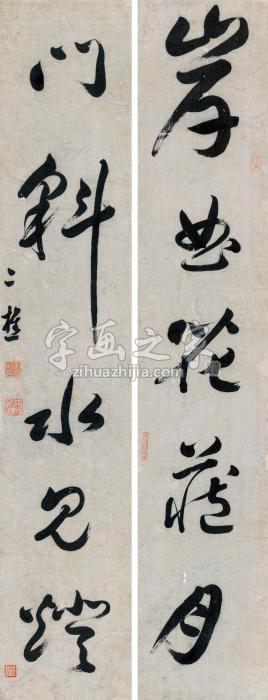 岸曲花藏月
門斜水见燈
二樵
字画之家
zihuazhijia.com